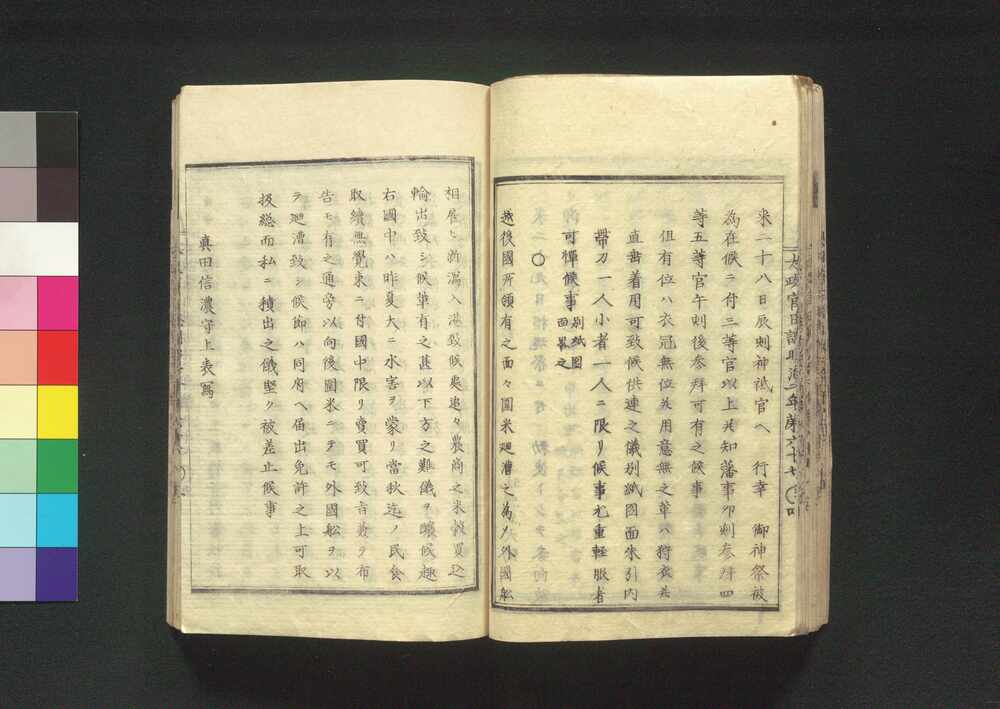 来二十八日辰刻神祇官ヘ　行幸　御神祭被
為在候ニ付三等官以上并知藩事卯刻参拜四
等五等官午刻後参拜可有之候事
但有位ハ衣冠無位并用意無之輩ハ狩衣并
直垂着用可致候供連之儀別紙図面朱引内
帶刀一人小者一人ニ限リ候事尤重輕服者
可憚候事 別紙圖面畧之
○
越後國所領有之面々圓米廻漕之為メ外國舩
太政官日誌明治二年第六十七
○四
相雇ヒ新潟入港致候處追々農商之米穀買込
輸出致シ候輩有之甚以下方之難儀ヲ醸候趣
右國中ハ昨夏大ニ水害ヲ蒙リ當秋迄ノ民食
取續無覺束ニ付國中限リ賣買可致旨兼テ布
告モ有之通旁以向後圍米ニテモ外國舩ヲ以
テ廻漕致シ候節ハ同府ヘ届出免許之上可取
扱總而私ニ積出之儀堅ク被差止候事
真田信濃守上表寫